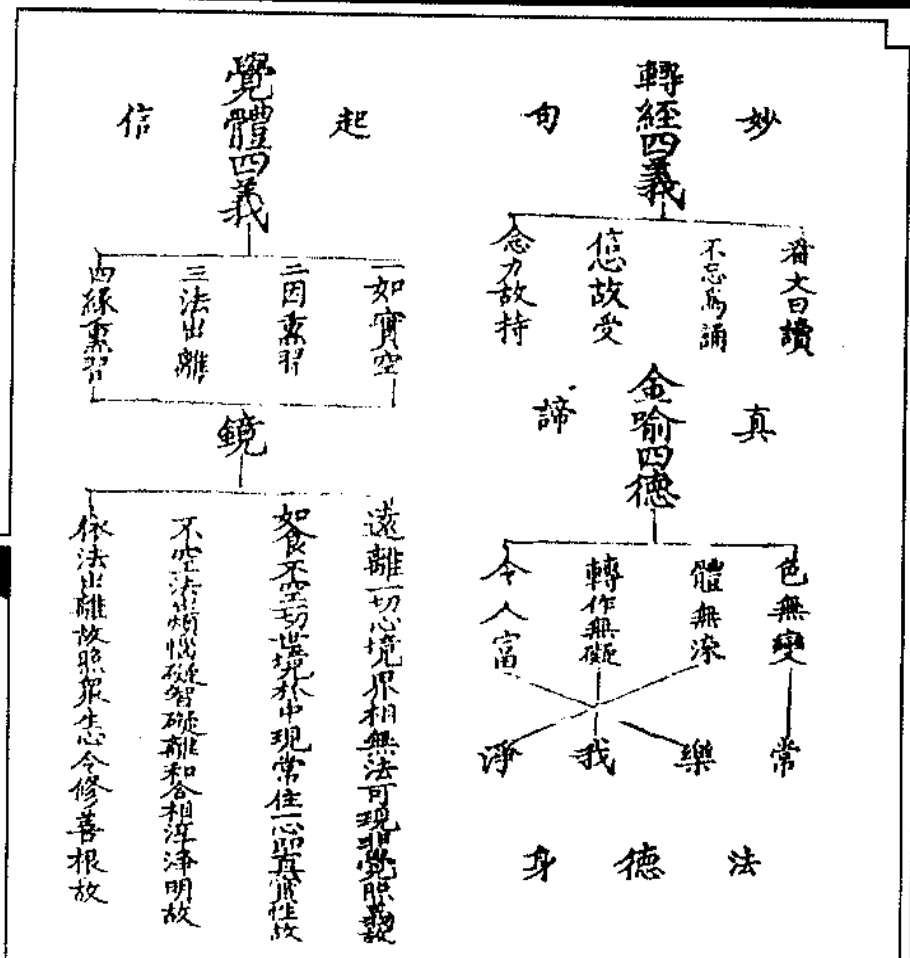 妙
轉經四義
句
看文曰讀
不忘為誦
信故受
念力故持
真
金喻四德
諦
色無變
體無染
轉作無礙
令人富
常
樂
我
淨
法
德
身
起
覺體四義
信
一如實空
二因熏習
三法出離
四緣熏習
鏡
遠離一切心境界相無法可現非覺照義故
如實不空一切世境於中現常住一心即真實性故
不空法出煩惱礙智礙離和合相淳淨明故
依法出離故照眾生心令修善根故